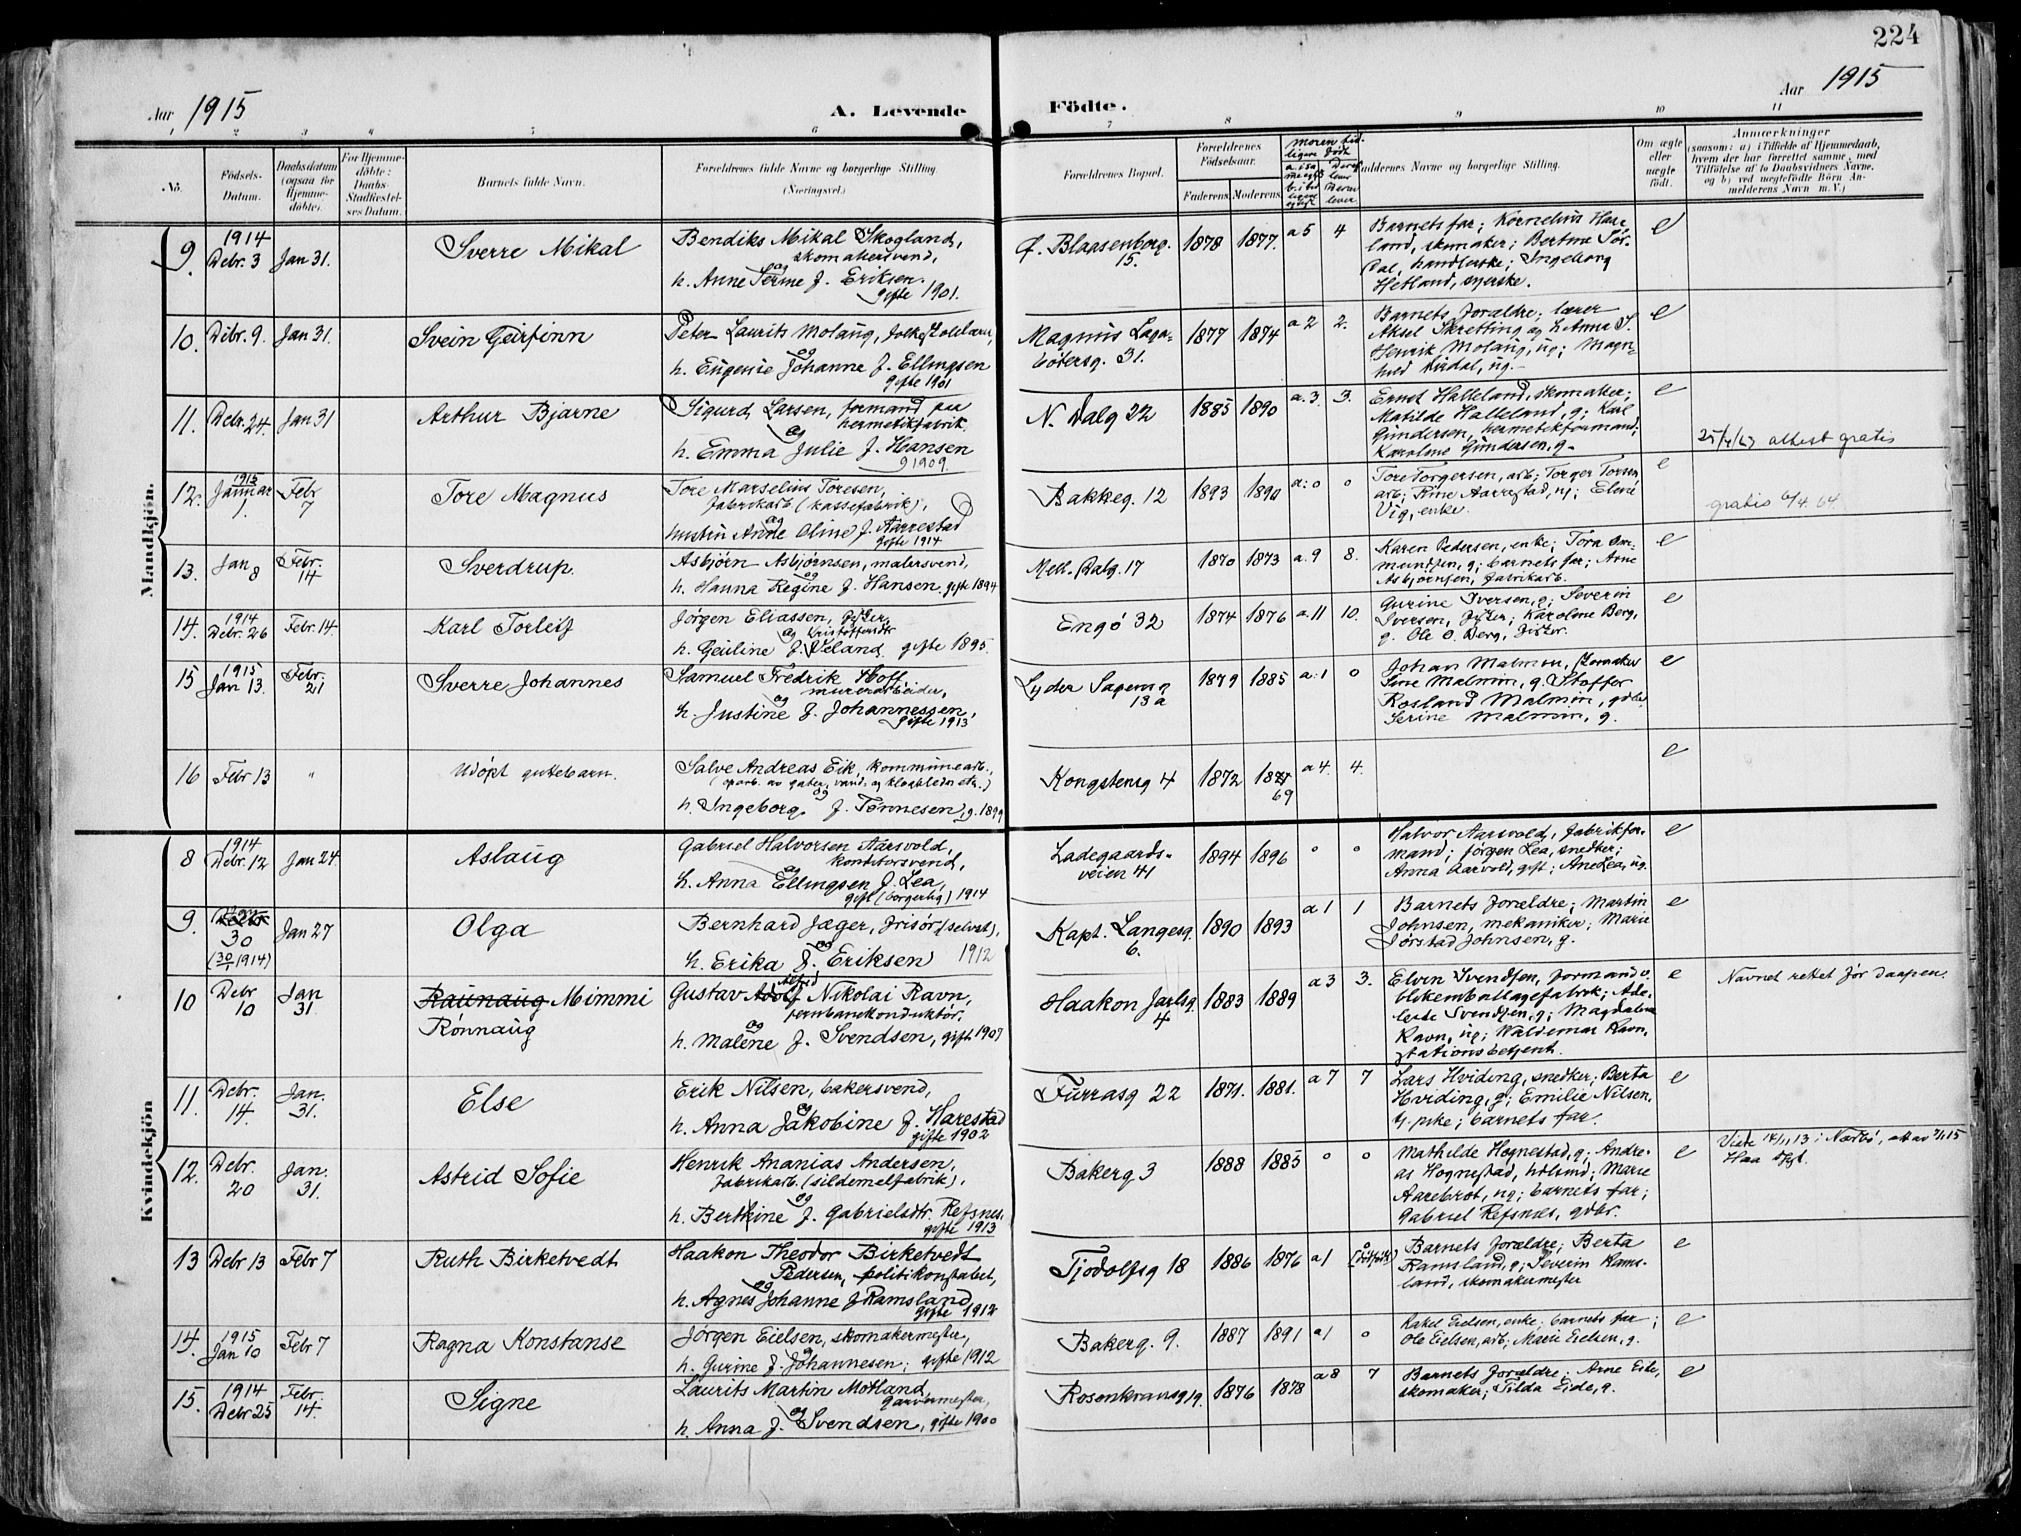 224
Aar 1915
A. Levende
Födte.
Aar 1915
1 2 3 4 5 6 7 8 9 10 11
No.
Födsels-
Datum.
Daabsdatum
(ogsaa for
Hjemme-
döbte).
For Hjemme-
döbte:
Daabs-
Stadfæstel-
ses Datum.
Barnets fulde Navn.
Forældrenes fulde Navne og borgerlige Stilling
(Næringsvei.)
Forældrenes Bopæl.
Forældrenes
Födselsaar.
Faderens. Moderens.
Moren tid-
ligere født
Faddernes Navne og borgerlige Stilling.
Om ægte
eller
uægte
födt.
Anmærkninger
(saasom: a) i Tilfælde af Hjemmedaab,
hvem der har forrettet samme, med
Tilföielse af to Daabsvidners Navne,
og b) ved uægtefödte Börn An-
melderens Navn m. V.)
Mandkjön.
9.
1914
Debr. 3
Jan 31.
Sverre Mikal
Bendiks Mikal Skogland,
skomakersvend,
og
h. Anne Serine f. Eriksen.
gifte 1901.
Ø. Blaasenborg.
15.
1878 1877. a 5 4
Barnets far; Kornelius Hau-
land, skomaker; Bertine Sør-
dal, handlerske; Ingeborg
Hetland, syerske.
e
10.
Debr. 9. Jan 31.
Svein Geirfinn
Peter Laurits Molaug, folkeskolelærer,
og
h. Eugenie Johanne f. Ellingsen
gifte 1901
Magnus Laga-
bøtersg. 31.
1877 1874 a 2 2.
Barnets forældre; lærer
Aksel Skretting og h. Anna S.
Henrik Molaug, ug; Magn-
hild Aadal, ug.
e
11.
Debr. 24. Jan 31
Arthur Bjarne
Sigurd Larsen, formand paa
hermetikfabrik.
og
h. Emma Julie f. Hansen
g 1909.
N. Dalg 22
1885 1890 a. 3. 3.
Ernst Halleland, skomaker;
Matilde Halleland, g; Karl
Gundersen, hermetikformand;
Karoline Gundersen, g.
e
25/4/63 attest gratis
12.
1915
Januar
1.
Febr
7
Tore Magnus
Tore Marselius Toresen,
fabrikarb (kassefabrik),
og
hustru Anne Oline f. Aarrestad
gifte 1914
Bakkeg. 12
1893 1890 a: 0 0
Tore Torgersen, arb; Torger Torsen
arb; Rine Aarrestad, ug; Eline
Vig, enke.
e
gratis 6/4. 64.
13.
Jan 8
Febr.
14
Sverdrup.
Asbjørn Asbjørnsen, malersvend,
og
h. Hanna Regine f. Hansen. gifte 1894
Mell. Dalg. 17
1870 1873 a. 9 8.
Karen Pedersen, enke; Tora Om-
mundsen, g; barnets far; Arne
Asbjørnsen, fabrikarb.
e
14.
1914
Debr. 26
Febr. 14.
Karl Torleif
Jørgen Eliassen, fisker,
og Kristoffersdtr.
h. Geuline f. Veland. gifte 1895.
Engø 32
1874 1876 a. 11 10.
Gurine Iversen, g; Severin
Iversen, fisker; Karoline Berg,
g. Ole O. Berg, fisker.
e
15
1915
Jan 13.
Febr.
21
Sverre Johannes
Samuel Fredrik Hoff,
murerarbeider,
og
h. Justine f. Johannessen,
gifte 1913
Lyder Sagensg
13 a
1879 1885 a. 1 0
Johan Malmin, skomaker
Sine Malmin, g. Stoffer
Rosland Malmin, gdbr
Serine Malmin, g.
e
16
Febr 13
"
Udøpt guttebarn.
Salve Andreas Eik, kommunearb.,
og
h. Ingeborg f. Tønnesen, g. 1899
Kongstensg 4
1872 1871
69
a 4. 4.
e
Kvindekjön
8
1914
Debr. 12
Jan 24
Aslaug
Gabriel Halvorsen Aarsvold,
konditorsvend,
og
h. Anna Ellingsen f. Lea,
gift (borgerlig) 1914
Ladegaards-
veien 41
1894 1896 0 0
Halvor Aarsvold, fabrikfor-
mand; Jørgen Lea, snedker;
Anna Aarvold, gift; Ane Lea, ug.
e
9.
30
(30/1 1914)
Jan 27
Olga
Bernhard Jæger, frisør (selvst),
og
h. Erika f. Eriksen 1912
Kapt. Langesg.
6.
1890 1893 a 1 1
Barnets forældre; Martin
Johnsen, mekaniker; Marie
Jørstad Johnsen, g.
e
10
Debr
10
Jan
31.
Raunaug Mimmi
Rønnaug
Alfred
Gustav Adolf Nikolai Ravn,
jernbanekonduktør,
og
h. Malene f. Svendsen, gift 1907
Haakon Jarlsg.
4
1883 1889 a 3 3.
Elvin Svendsen, formand v.
blikemballagefabrik; Ade-
leide Svendsen, g; Magdalena
Ravn, ug; Waldemar Ravn,
stationsbetjent.
e
Navnet rettet før daapen.
11.
Debr.
14.
Jan.
31.
Else
Erik Nilsen, bakersvend,
og
h. Anna Jakobine f. Harestad
gifte 1902
Furrasg 22
1871. 1881. a 7 7
Lars Hviding, snedker; Berta
Hviding, g; Emilie Nilsen,
enke; barnets far.
e
12.
Debr.
20
Jan.
31.
Astrid Sofie
Henrik Ananias Andersen,
fabrikarb. (sildemelfabrik),
og
h. Bertine f. Gabrielsdtr. Refsnes.
gifte 1913
Bakerg 3
1888 1885 0 0
Mathilde Hognestad, g; Andre-
as Hognestad, holsmd; Marie
Aarebrot, ug; barnets far;
Gabriel Refsnæs, gdbr.
e
Viet 14/11 13 i Nærbø, att av 7/1 15
Haa spgt.
13
Debr 13 Febr 7
Ruth Birketvedt
Haakon Theodor Birketvedt
Pedersen, politikonstabel,
og
h. Agnes Johanne f Ramsland
gifte 1912
Tjodolfsg 18
1886 1876 a 1 0
(dødfødt)
Barnets forældre; Berta
Ramsland, g; Severin Rams-
land, skomakermester
e
14.
1915
Jan 10
Febr 7
Ragna Konstanse
Jørgen Eielsen, skomakermester,
og
h. Gurine f. Johannesen; gifte 1912
Bakerg. 9.
1887 1891 a 1 0
Rakel Eielsen, enke; barnets far;
Ole Eielsen, arb; Marie Eielsen, g.
e
15.
1914
Debr 25
Febr.
14.
Signe
Laurits Martin Motland,
garvermester,
og
h. Anna f. Svendsen, gifte 1900
Rosenkransg 19.
1876 1878 a 8 7
Barnets forældre; Arne Eide,
skomaker; Tilda Eide, g.
e